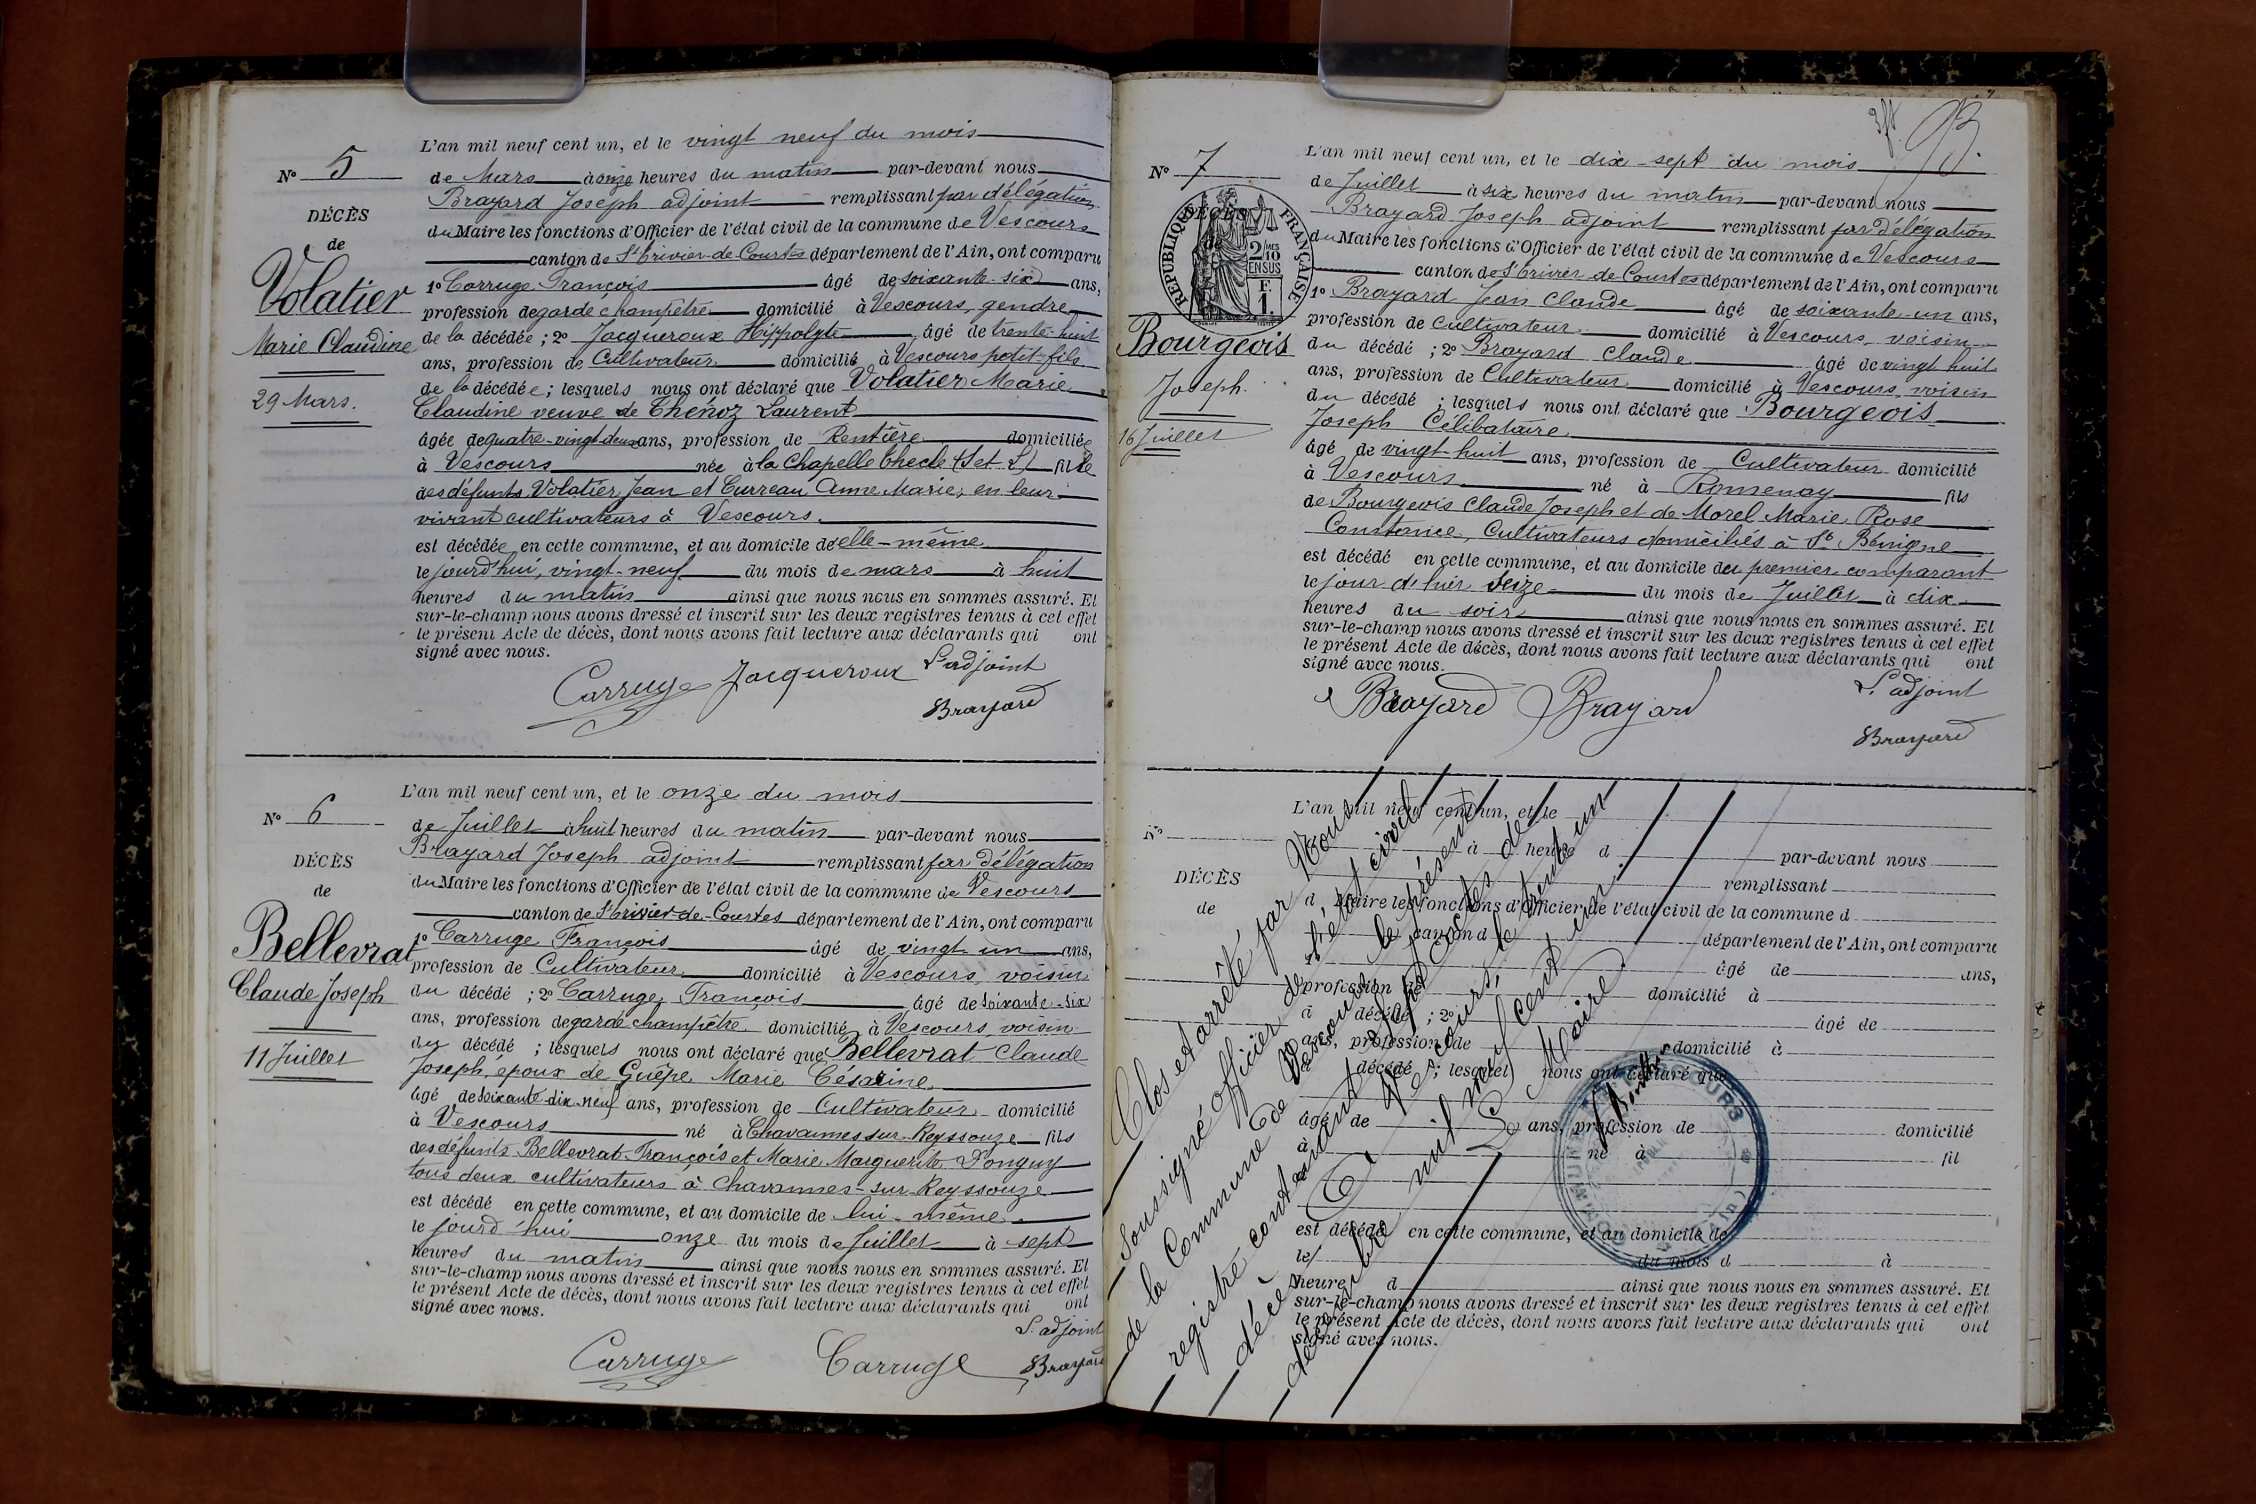 N° 5
DÉCÈS
de
Volatier
Marie Claudine
29 Mars.
L'an mil neuf cent un, et le vingt neuf du mois
de Mars à onze heures du matin par-devant nous
Brayard Joseph adjoint remplissant par délégation
du Maire les fonctions d'Officier de l'état civil de la commune de Vescours
canton de St Trivier-de-Courtes département de l'Ain, ont comparu
1° Carruge François âgé de soixante-six ans,
profession de garde champêtre domicilié à Vescours, gendre
de la décédée ; 2° Jacqueroux Hippolyte âgé de trente-huit
ans, profession de Cultivateur domicilié à Vescours petit-fils
de la décédée ; lesquels nous ont déclaré que Volatier Marie
Claudine veuve de Chênoz Laurent
âgée de quatre-vingt deux ans, profession de Rentière domiciliée
à Vescours née à la Chapelle Thecle (S et L) fille
des défunts Volatier Jean et Curreau Anne Marie, en leur
vivant cultivateurs à Vescours.
est décédée en cette commune, et au domicile d'elle-même
le jourd'hui, vingt-neuf du mois de mars à huit
heures du matin ainsi que nous nous en sommes assuré. Et
sur-le-champ nous avons dressé et inscrit sur les deux registres tenus à cet effet
le présent Acte de décès, dont nous avons fait lecture aux déclarants qui ont
signé avec nous.
Carruge Jacqueroux L'adjoint
Brayard
N° 6
DÉCÈS
de
Bellevrat
Claude Joseph
11 Juillet
L'an mil neuf cent un, et le onze du mois
de Juillet à huit heures du matin par-devant nous
Brayard Joseph adjoint remplissant par délégation
du Maire les fonctions d'Officier de l'état civil de la commune de Vescours
canton de St Trivier-de-Courtes département de l'Ain, ont comparu
1° Carruge François âgé de vingt un ans,
profession de Cultivateur domicilié à Vescours, voisin
du décédé ; 2° Carruge, François âgé de soixante-six
ans, profession de garde champêtre domicilié à Vescours, voisin
du décédé ; lesquels nous ont déclaré que Bellevrat Claude
Joseph, époux de Guêpe Marie Césarine
âgé de soixante-dix-neuf ans, profession de Cultivateur domicilié
à Vescours né à Chavannes sur Reyssouze fils
des défunts Bellevrat François et Marie Marguerite Ponguy
tous deux cultivateurs à Chavannes-sur Reyssouze
est décédé en cette commune, et au domicile de lui-même
le jourd'hui onze du mois de Juillet à sept
heures du matin ainsi que nous nous en sommes assuré. Et
sur-le-champ nous avons dressé et inscrit sur les deux registres tenus à cet effet
le présent Acte de décès, dont nous avons fait lecture aux déclarants qui ont
signé avec nous.
L'adjoint
Carruge Carruge Brayard
93.
N° 7
DÉCÈS
de
RÉPUBLIQUE FRANÇAISE
2 MES
10
EN SUS
F.
1.
Bourgeois
Joseph.
16 Juillet
L'an mil neuf cent un, et le dix-sept du mois
de Juillet à six heures du matin par-devant nous
Brayard Joseph adjoint remplissant par délégation
du Maire les fonctions d'Officier de l'état civil de la commune de Vescours
canton de St Trivier de Courtes département de l'Ain, ont comparu
1° Brayard Jean Claude âgé de soixante-un ans,
profession de cultivateur domicilié à Vescours, voisin
du décédé ; 2° Brayard Claude âgé de vingt huit
ans, profession de Cultivateur domicilié à Vescours, voisin
du décédé ; lesquels nous ont déclaré que Bourgeois
Joseph Célibataire
âgé de vingt-huit ans, profession de Cultivateur domicilié
à Vescours né à Romenay fils
de Bourgeois Claude Joseph et de Morel Marie Rose
Constance, Cultivateurs domiciliés à St Bénigne
est décédé en cette commune, et au domicile du premier comparant
le jour d'hier seize du mois de Juillet à dix
heures du soir ainsi que nous nous en sommes assuré. Et
sur-le-champ nous avons dressé et inscrit sur les deux registres tenus à cet effet
le présent Acte de décès, dont nous avons fait lecture aux déclarants qui ont
signé avec nous.
Brayard Brayard L'adjoint
Brayard
N°
DÉCÈS
de
L'an mil neuf cent un, et le
à heure d par-devant nous
remplissant
d Maire les fonctions d'Officier de l'état civil de la commune d
canton d département de l'Ain, ont comparu
âgé de ans,
profession de domicilié à
d décédé ; 2° âgé de
ans, profession de domicilié à
d décédé ; lesquel nous ont déclaré que
âgé de ans, profession de domicilié
à né à fil
est décédé en cette commune, et au domicile de
le du mois d à
heure d ainsi que nous nous en sommes assuré. Et
sur-le-champ nous avons dressé et inscrit sur les deux registres tenus à cet effet
le présent Acte de décès, dont nous avons fait lecture aux déclarants qui ont
signé avec nous.
Clos et arrêté par Nous
soussigné officier de l'état civil
de la Commune de Vescours le présent
registre contenant sept actes de
décès
A Vescours, le trente un
décembre mil neuf cent un
Le Maire